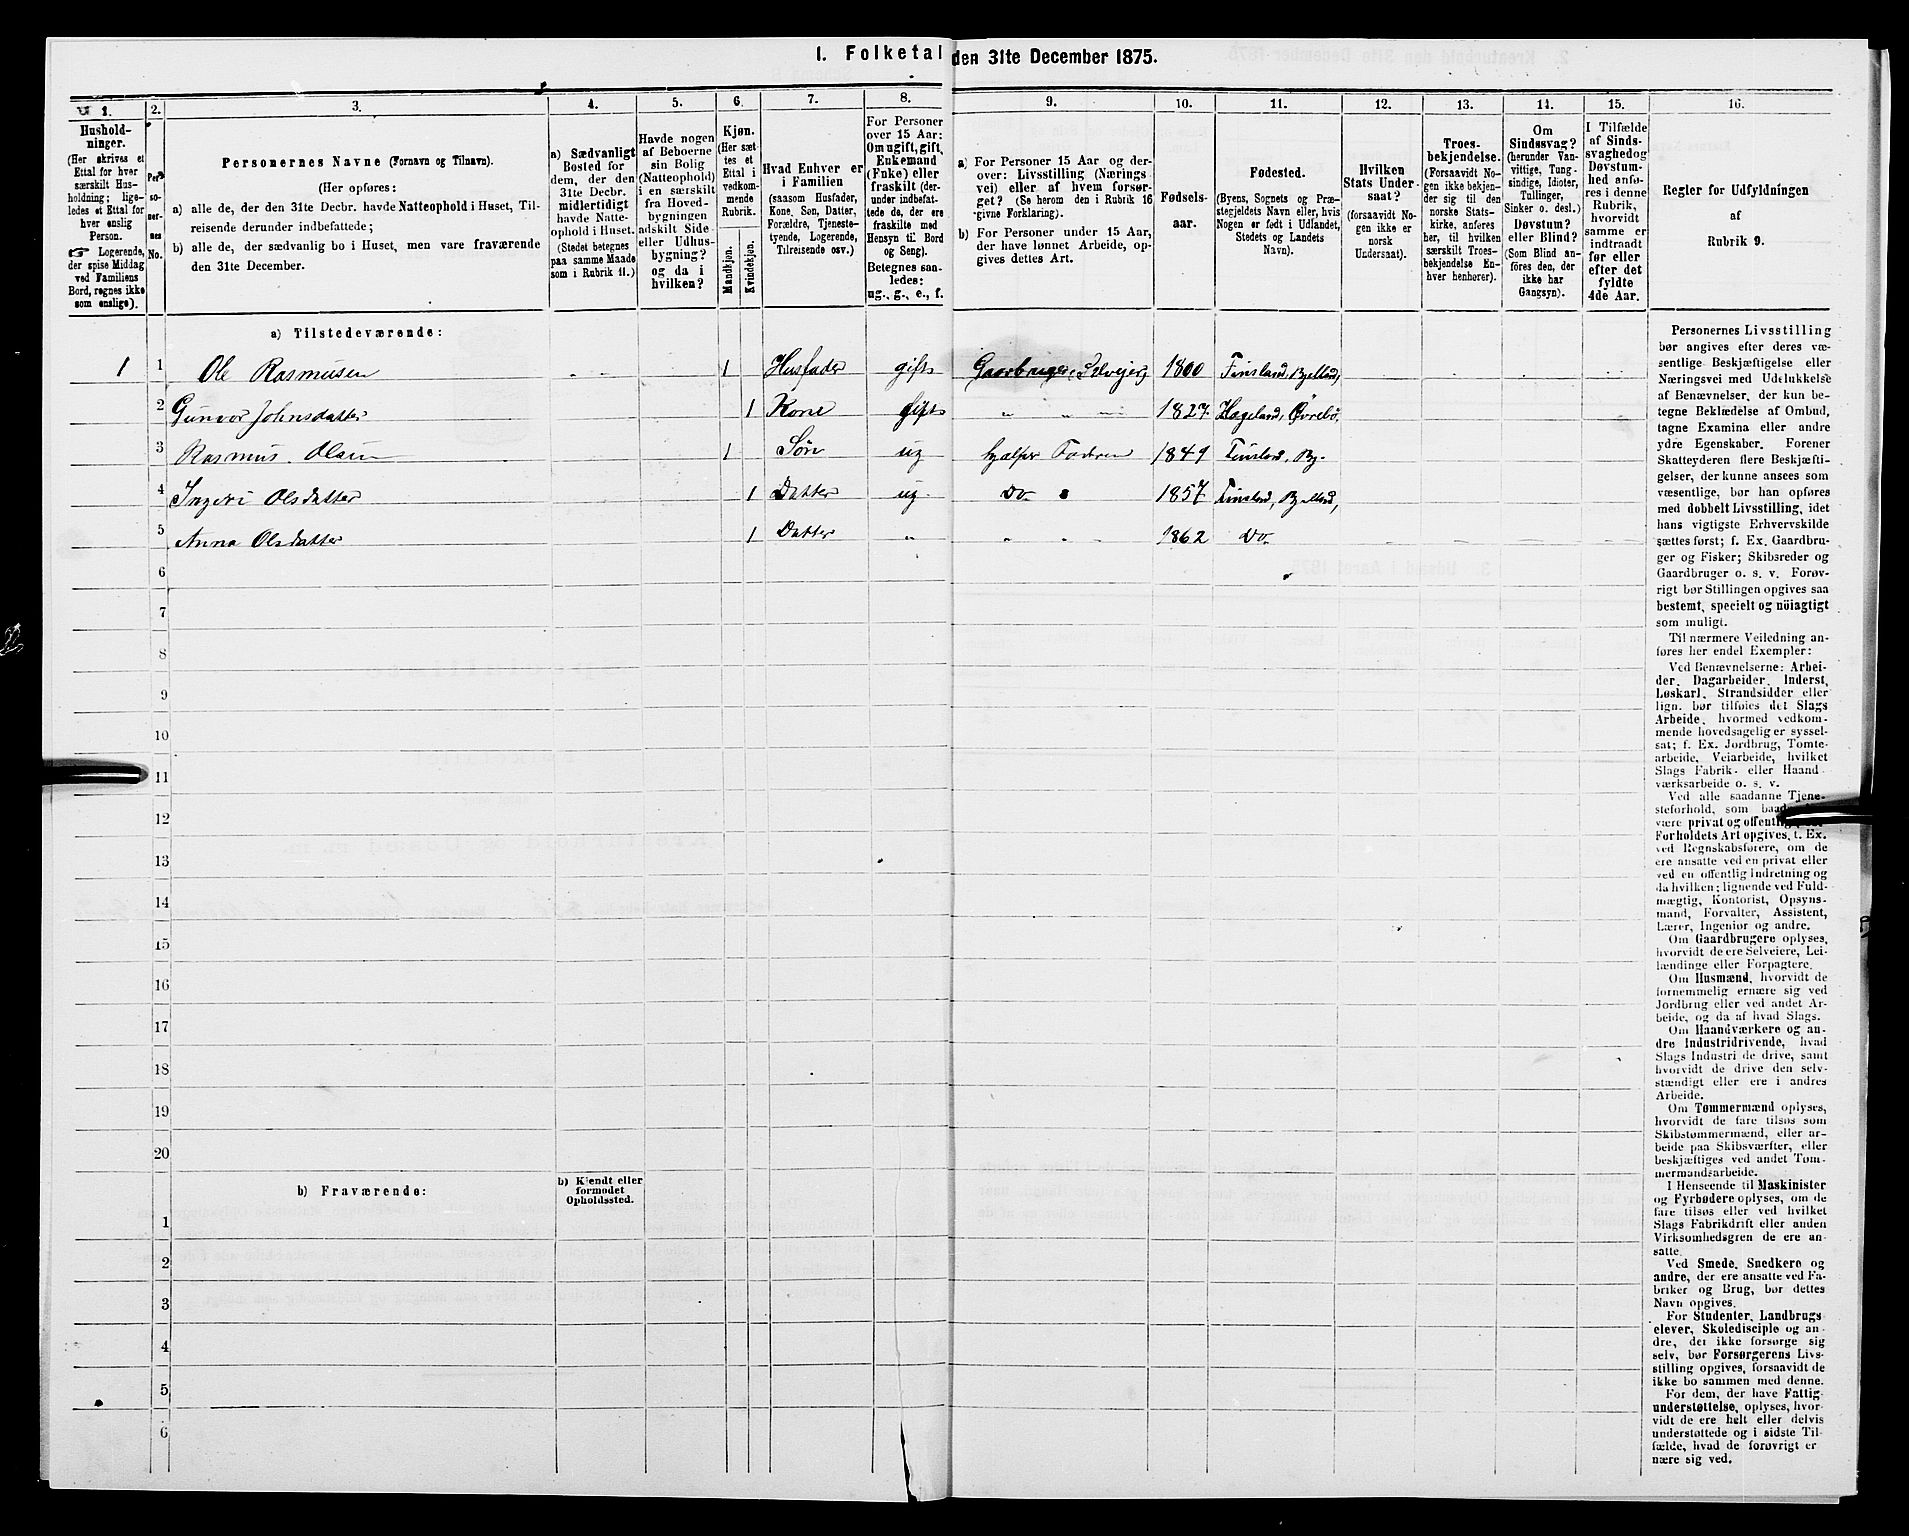 1. Folketal den 31te December 1875.
1. 2. 3. 4. 5. 6. 7. 8. 9. 10. 11. 12. 13. 14. 15. 16.
Hushold-
ninger.
(Her skrives et
Ettal for hver
særskilt Hus-
holdning; lige-
ledes et Ettal for
hver enslig
Person.
Logerende,
der spise Middag
ved Familiens
Bord, regnes ikke
som enslige).
Per-
so-
ner-
nes
No.
Personernes Navne (Fornavn og Tilnavn).
(Her opføres:
a) alle de, der den 31te Decbr. havde Natteophold i Huset, Til-
reisende derunder indbefattede;
b) alle de, der sædvanlig bo i Huset, men vare fraværende
den 31te December.
a) Sædvanligt
Bosted for
dem, der den
31te Decbr.
midlertidigt
havde Natte-
ophold i Huset.
(Stedet betegnes
paa samme Maade
som i Rubrik 11.)
Havde nogen
af Beboerne
sin Bolig
(Natteophold)
i en særskilt
fra Hoved-
bygningen
adskilt Side-
eller Udhus-
bygning?
og da i
hvilken?
Kjøn.
(Her sæt-
tes et
Ettal i
vedkom-
mende
Rubrik.
Mandkjøn.
Kvindekjøn.
Hvad Enhver er
i Familien
(saasom Husfader,
Kone, Søn, Datter,
Forældre, Tjeneste-
tyende, Logerende,
Tilreisende osv.)
For Personer
over 15 Aar:
Om ugift, gift,
Enkemand
(Enke) eller
fraskilt (der-
under indbefat-
tede de, der ere
fraskilte med
Hensyn til Bord
og Seng).
Betegnes saa-
ledes:
ug., g., e., f.
a) For Personer 15 Aar og der-
over: Livsstilling (Nærings-
vei) eller af hvem forsør-
get? (Se herom den i Rubrik 16
givne Forklaring).
b) For Personer under 15 Aar,
der have lønnet Arbeide, op-
gives dettes Art.
Fødsels-
aar.
Fødested.
(Byens, Sognets og Præ-
stegjeldets Navn eller, hvis
Nogen er født i Udlandet,
Stedets og Landets
Navn).
Hvilken
Stats Under-
saat?
(forsaavidt No-
gen ikke er
norsk
Undersaat).
Troes-
bekjendelse.
(Forsaavidt No-
gen ikke bekjen-
der sig til den
norske Stats-
kirke, anføres
her, til hvilken
særskilt Troes-
bekjendelse En-
hver henhører).
Om
Sindssvag?
(herunder Van-
vittige, Tung-
sindige, Idioter,
Tullinger,
Sinker o. desl.)
Døvstum?
eller Blind?
(Som Blind an-
føres den, der
ikke har
Gangsyn).
I Tilfælde
af Sinds-
svaghed og
Døvstum-
hed anfø-
res i denne
Rubrik,
hvorvidt
samme er
indtraadt
før eller
efter det
fyldte
4de Aar.
Regler for Udfyldningen
af
Rubrik 9.
a) Tilstedeværende:
1 1 Ole Rasmusen 1 Husfader gift Gaardbruger, Selvejer, 1800 Finsland, Bjelland,
2 Gunvor Johnsdatter 1 Kone gift " " " 1827 Hægeland, Øvrebø,
3 Rasmus Olsen 1 Søn ug hjælper Faderen 1849 Finsland, By-
4 Ingeri Olsdatter 1 Datter ug Do " 1857 Finsland, Bjelland,
5 Anna Olsdatter 1 Datter " " " " 1862 Do
6
7
8
9
10
11
12
13
14
15
16
17
18
19
20
b) Fraværende:
b) Kjendt eller
formodet
Opholdssted.
1
2
3
4
5
6
Personernes Livsstilling
bør angives efter deres væ-
sentlige Beskjæftigelse eller
Næringsvei med Udelukkelse
af Benævnelser, der kun be-
tegne Beklædelse af Ombud,
tagne Examina eller andre
ydre Egenskaber. Forener
Skatteyderen flere Beskjæfti-
gelser, der kunne ansees som
væsentlige, bør han opføres
med dobbelt Livsstilling, idet
hans vigtigste Erhvervskilde
sættes først; f. Ex. Gaardbru-
ger og Fisker; Skibsreder og
Gaardbruger o. s. v. Forøv-
rigt bør Stillingen opgives saa
bestemt, specielt og nöiagtigt
som muligt.
Til nærmere Veiledning an-
føres her endel Exempler:
Ved Benævnelserne: Arbei-
der, Dagarbeider, Inderst,
Løskarl, Strandsidder eller
lign. bør tilføies det Slags
Arbeide, hvormed vedkom-
mende hovedsagelig er syssel-
sat; f. Ex. Jordbrug, Tomte-
arbeide, Veiarbeide, hvilket
Slags Fabrik- eller Haand-
værksarbeide o. s. v.
Ved alle saadanne Tjene-
steforhold, som
være privat og offentlig,
Forholdets Art opgives, t. Ex.
ved Regnskabsførere, om de
ere ansatte ved en privat eller
ved en offentlig Indretning og
da hvilken; lignende ved Fuld-
mægtig, Kontorist, Opsyns-
mand, Forvalter, Assistent,
Lærer, Ingeniør og andre.
Om Gaardbrugere oplyses,
hvorvidt de ere Selveiere, Lei-
lændinge eller Forpagtere.
Om Husmænd, hvorvidt de
fornemmelig ernære sig ved
Jordbrug eller ved andet Ar-
beide, og da af hvad Slags.
Om Haandværkere og an-
dre Industridrivende, hvad
Slags Industri de drive, samt
hvorvidt de drive den selv-
stændigt eller ere i andres
Arbeide.
Om Tømmermænd oplyses,
hvorvidt de fare tilsøs som
Skibstømmermænd, eller ar-
beide paa Skibsværfter, eller
beskjæftiges ved andet Tøm-
mermandsarbeide.
I Henseende til Maskinister
og Fyrbødere oplyses, om de
fare tilsøs eller ved hvilket
Slags Fabrikdrift eller anden
Virksomhedsgren de ere an-
satte.
Ved Smede, Snedkere og
andre, der ere ansatte ved Fa-
briker og Brug, bør dettes
Navn opgives.
For Studenter, Landbrugs-
elever, Skoledisciple og an-
dre, der ikke forsørge sig
selv, bør Forsørgerens Livs-
stilling opgives, forsaavidt de
ikke bo sammen med denne.
For dem, der have Fattig-
understøttelse, oplyses, hvor-
vidt de ere helt eller delvis
understøttede og i sidste Til-
fælde, hvad de forøvrigt er-
nære sig ved.